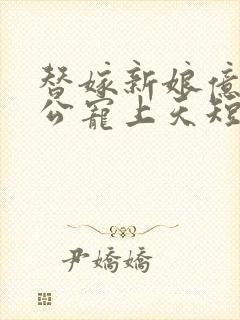 替嫁新娘億
公寵上天短
尹嬌嬌